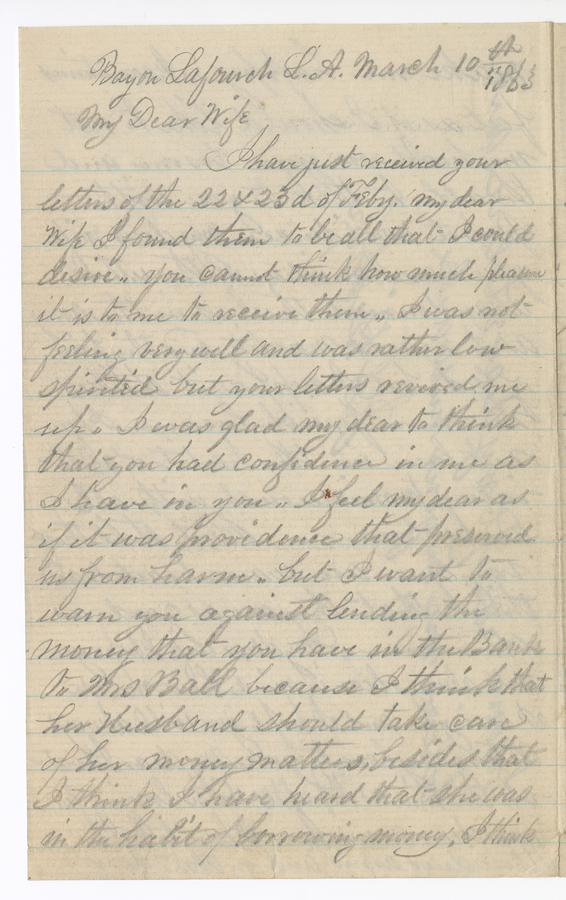 Bayou Lafourch L.A. March 10th 1863
My Dear Wife
I have just received your
letters of the 22 & 23d of Feby. my dear
Wife I found them to be all that I could
desire,, you cannot think how much pleasure
it is to me to receive them,, I was not
feeling very well and was rather low
spirited but your letters revived me
up. I was glad my dear to think
that you had confidence in me as
I have in you,, I feel my dear as
if it was providence that preserved
us from harm,, but I want to
warn you against lending the
money that you have in the Bank
to Mrs Ball because I think that
her Husband should take care
of her money matters, besides that
I think I have heard that she was
in the habit of borrowing money, I think